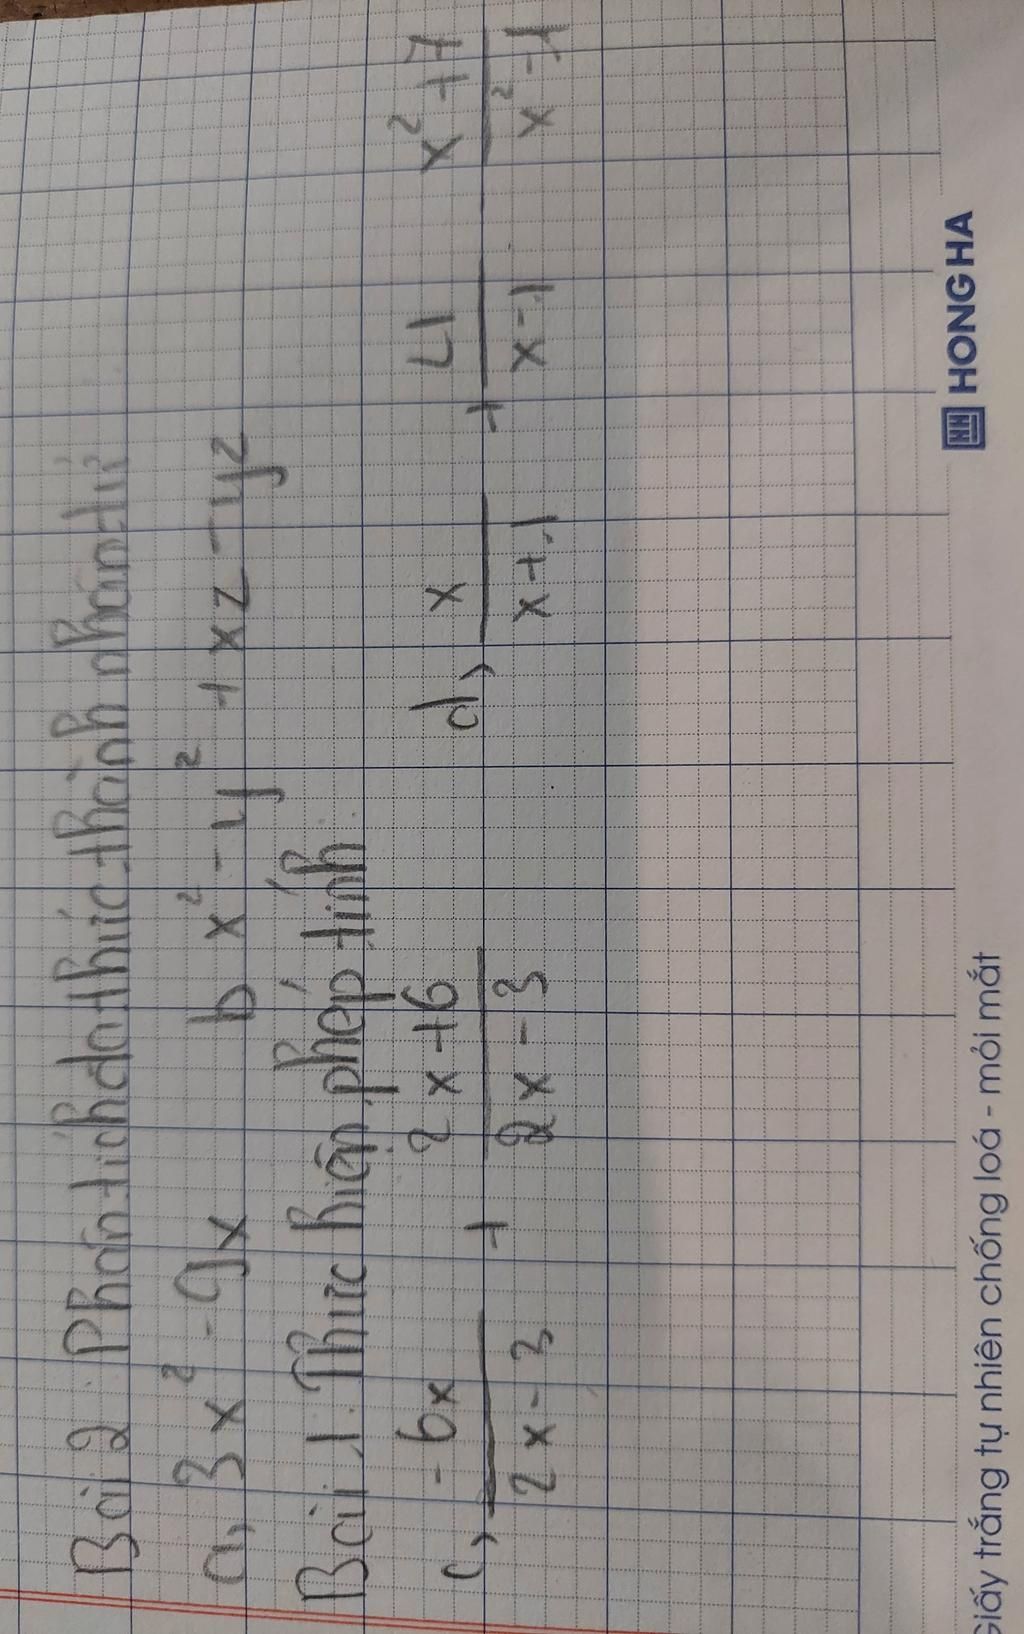 Bài 2 Phân tích đa thức thành nhân tử
a, 3x² - 9x b x² - y² + xz - yz
Bài 1. Thực hiện phép tính
c, -6x / 2x-3 + 2x+6 / 2x-3 d, x / x+1 + 4 / x-1 - x²+7 / x²-1
Giấy trắng tự nhiên chống loá - mỏi mắt HONG HA